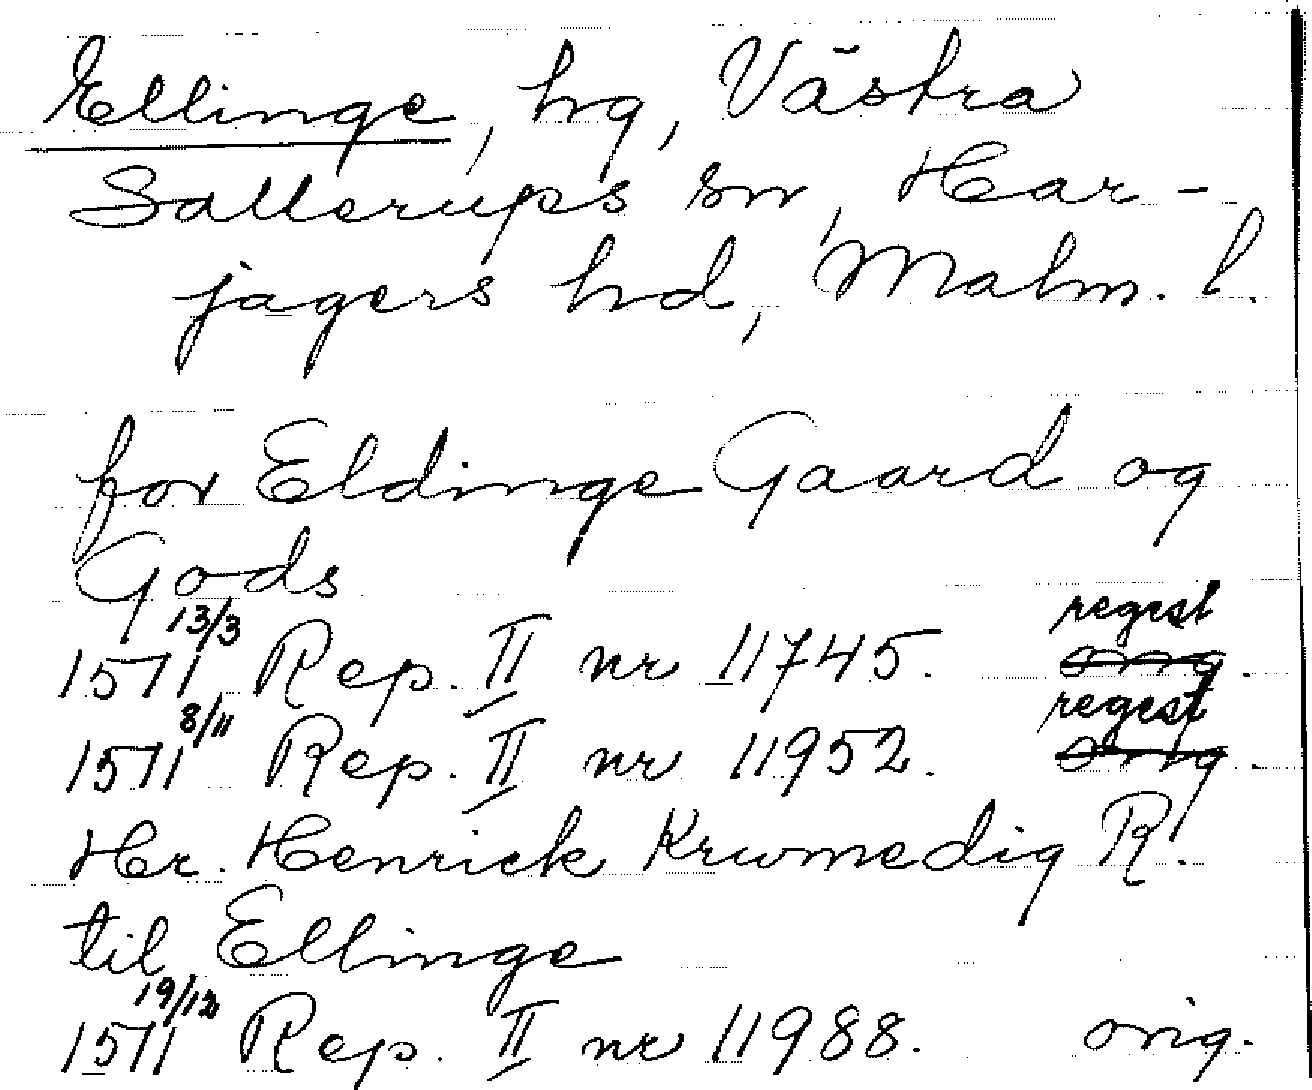 Ellinge, hg, Västra
Sallerups sn, Har-
jagers hd, Malm. l.
for Eldinge Gaard og
Gods
1571 13/3 Rep. II nr 11745. regest orig.
1571 8/11 Rep. II nr 11952. regest orig.
Hr. Henrick Krwmedig R.
til Ellinge
1571 19/12 Rep. II nr 11988. orig.